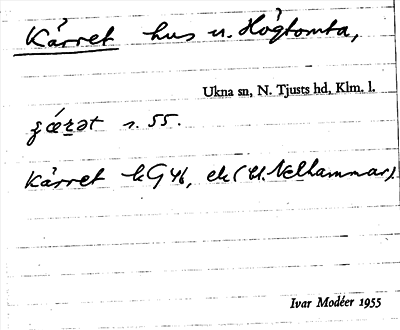 Kärret hus u. Högtomta,
Ukna sn, N. Tjusts hd, Klm. l.
s. 55.
Kärret k G 46, ek (U. Nelhammar).
Ivar Modéer 1955